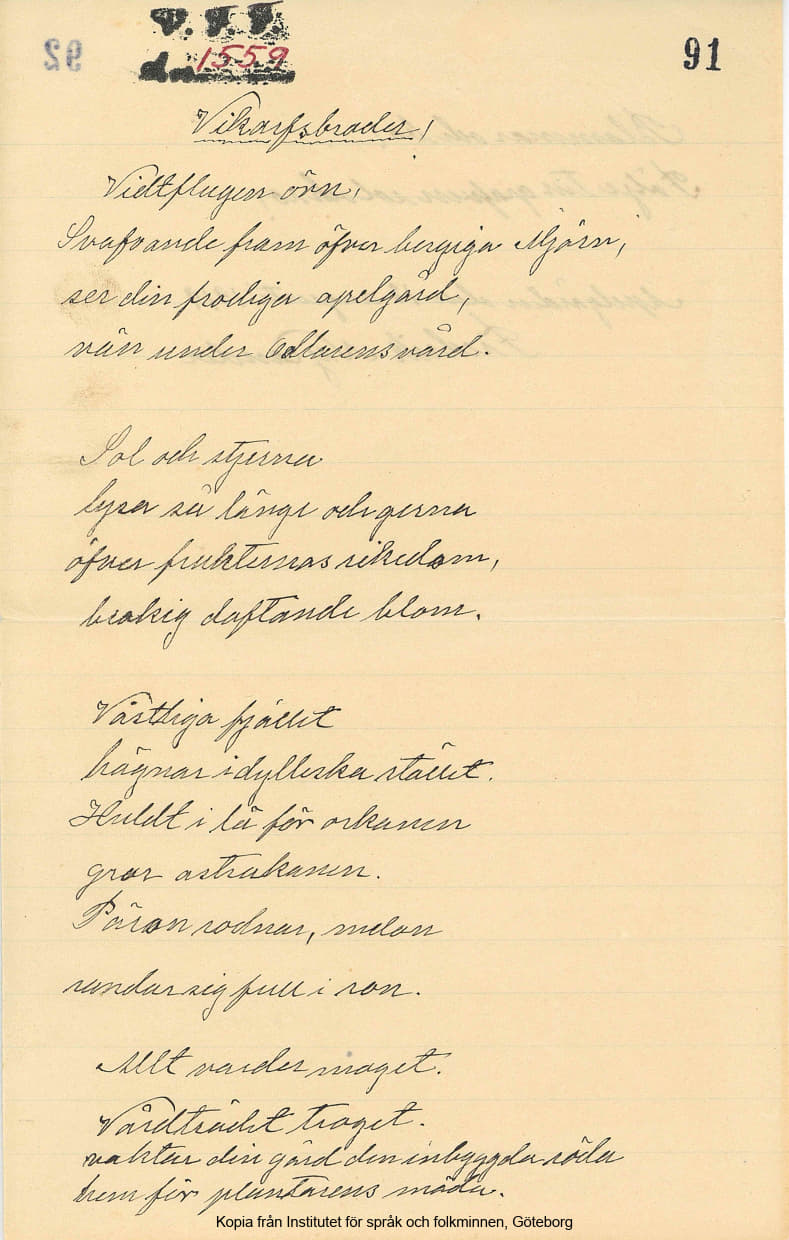 92
V. F. F.
1559
91
Vikarfsbroder!
Vidtflugen örn,
Sväfvande fram öfver bergiga Mjörn,
ser din frodiga apelgård,
vän under Allarens vård.
Sol och stjerna
lysa så länge och gerna
öfver frukternas rikedom,
brokig doftande blom.
Västliga fjället
hägnar idylliska stället.
Huldt i lä för orkanen
gror astrakanen.
Päron rodnar, melon
rundar sig full i ron.
Allt varder moget.
Vårdträdet troget.
vaktar din gård den inbyggda röda
hem för plantarens möda.
Kopia från Institutet för språk och folkminnen, Göteborg